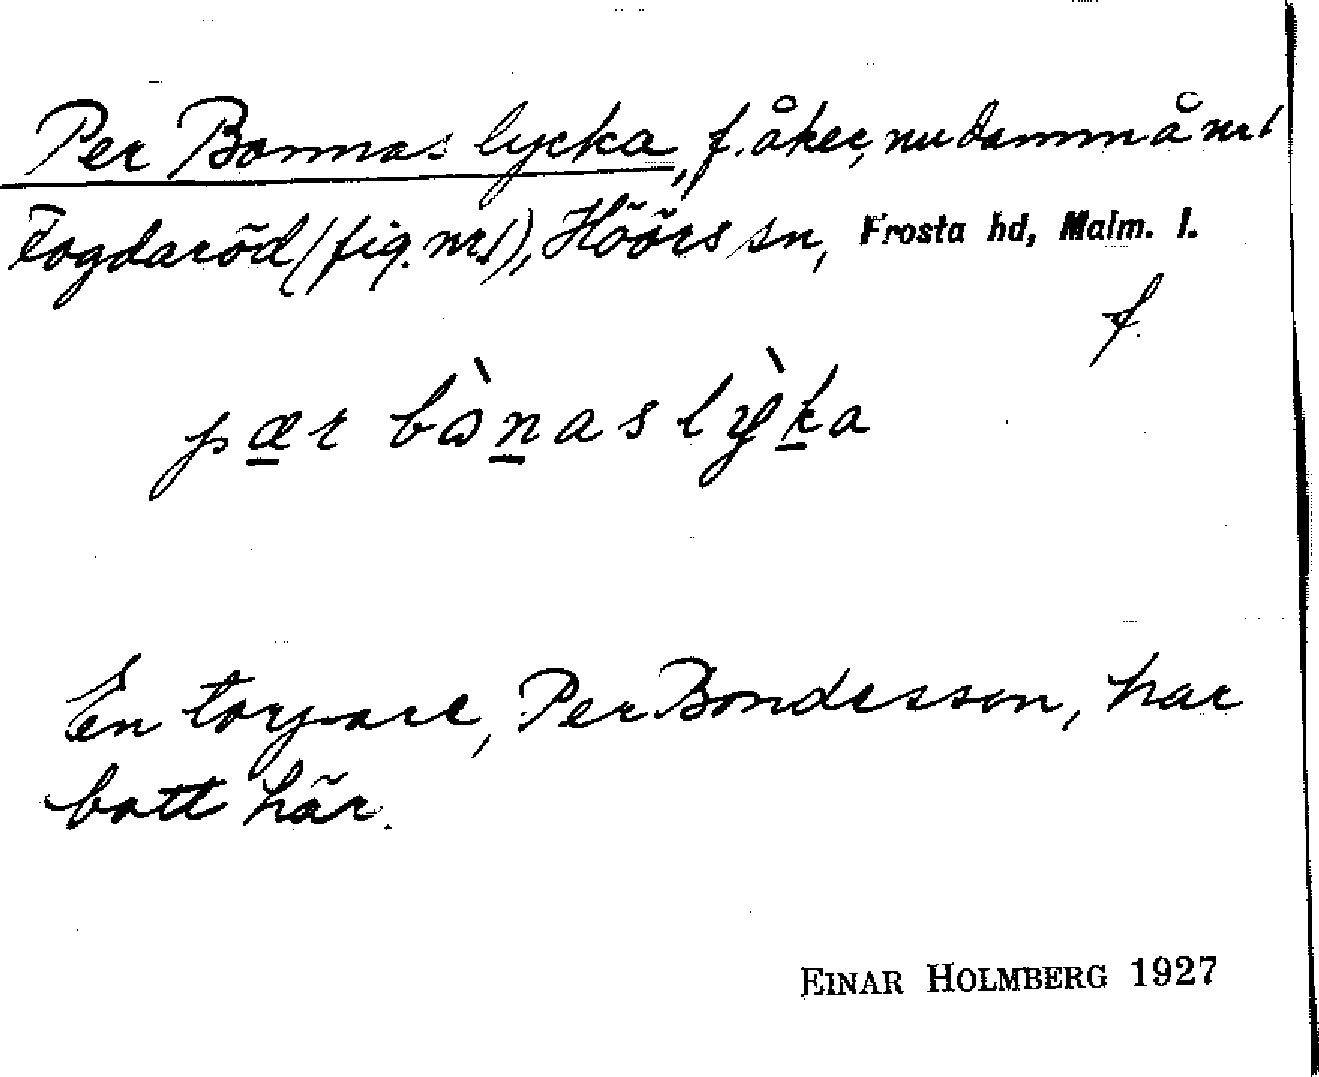 Per Bonnas lycka, f. åker, nu damm å nr 1
Fogdaröd (fig. nr 1), Höörs sn, Frosta hd, Malm. l.
f.
pær bònas lỳka
En torpare, Per Bondesson, har
bott här.
EINAR HOLMBERG 1927